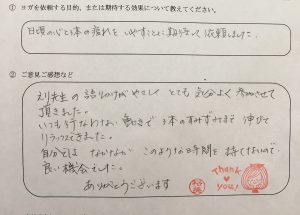 ① ヨガを依頼する目的、または期待する効果について教えてください。
日頃の心と体の疲れを いやすことに期待して 依頼しました。
② ご意見ご感想など
先生の 語りかけがやさしく とても 気分よく 参加させて
頂きました。
いつも行なわない 動きで 体のすみずみまで 伸びて
リラックスできました。
自分では なかなか このような時間を 持てないので
良い機会でした。
ありがとうございます
Thank
you!